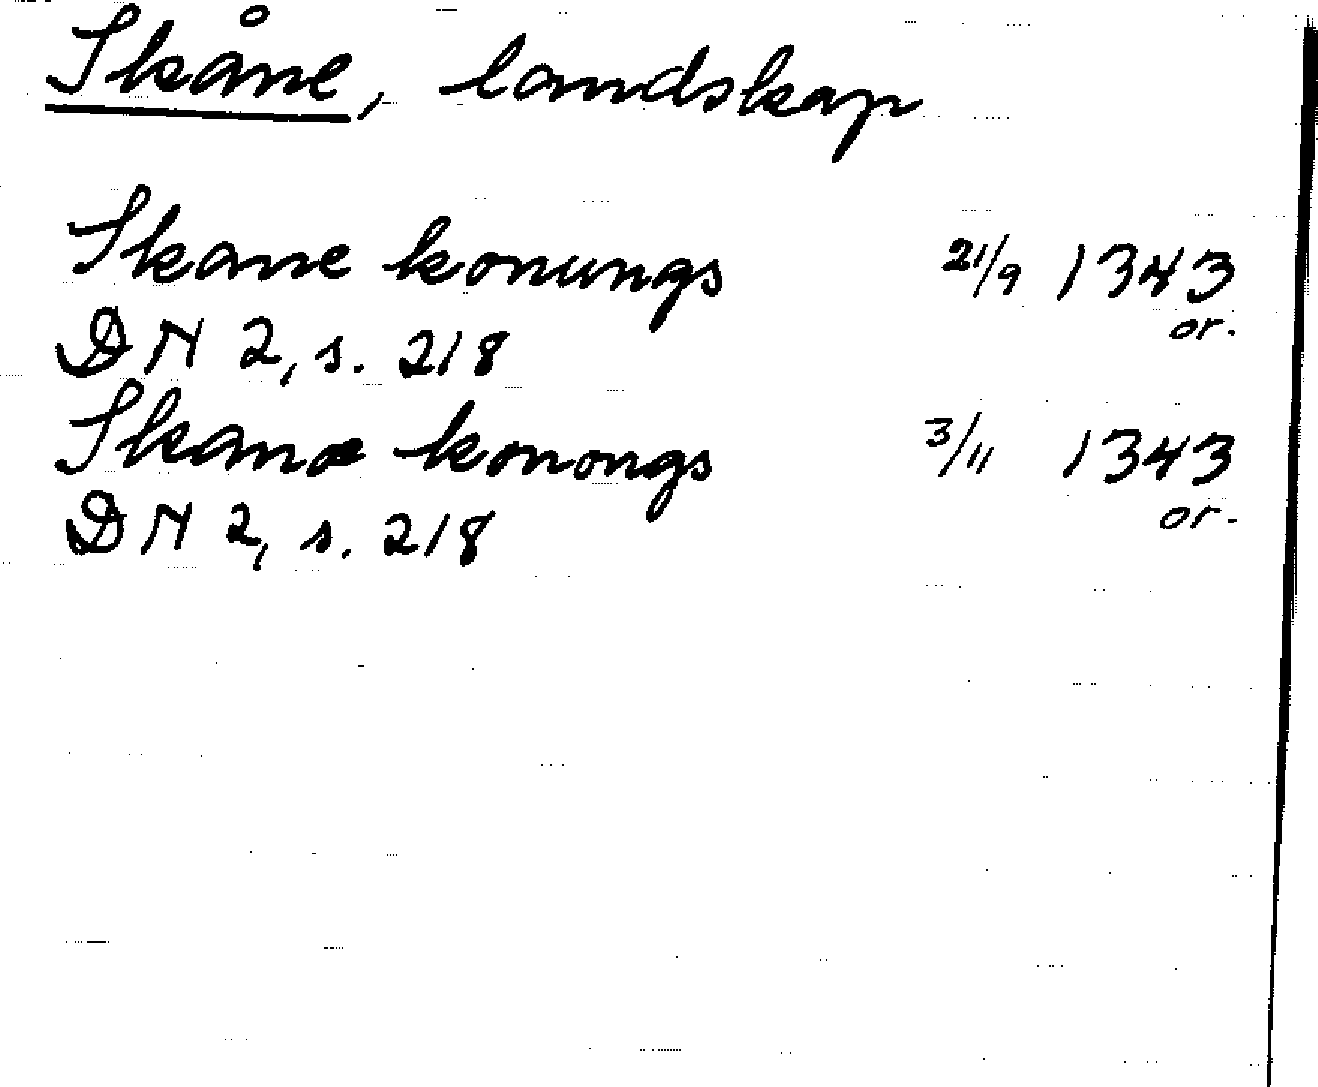 Skåne, landskap
Skane konungs 21/9 1343
or.
DN 2, s. 218
Skanæ konongs 3/11 1343
or.
DN 2, s. 218